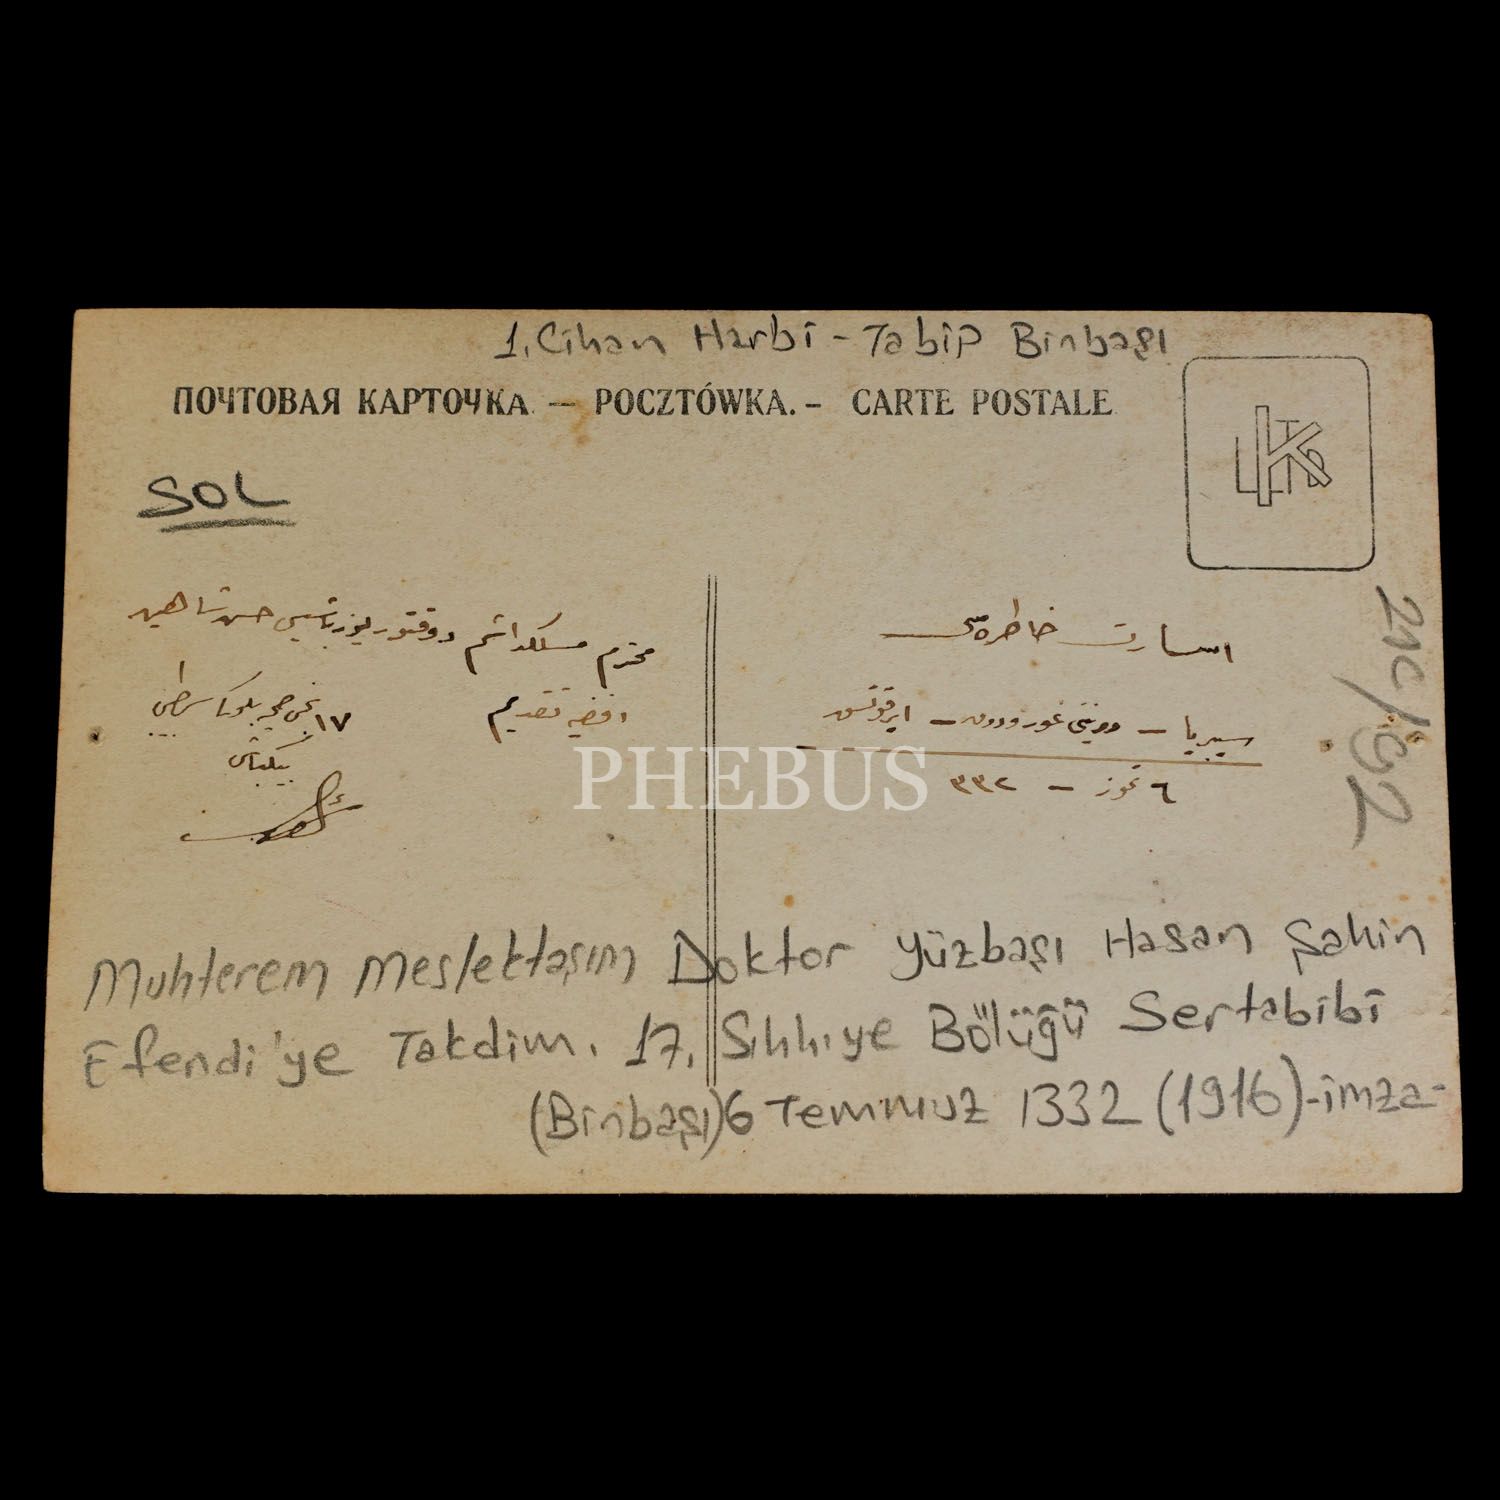 1. Cihan Harbi - Tabip Binbaşı
ПОЧТОВАЯ КАРТОЧКА. — POCZTÓWKA. - CARTE POSTALE
SOL
محترم مسلكداشم دوقتور یوزباشیسی حسن شاهین
افندیه تقدیم
١٧ نجی صحیه بلوكی سرطبیبی
بیكباشی
اسارت خاطره‌سی
سیبریا - - ایرقوتسق
٦ تموز - ٣٣٢
PHEBUS
Muhterem Meslektaşım Doktor Yüzbaşı Hasan Şahin
Efendi'ye Takdim. 17. Sıhhıye Bölüğü Sertabibi
(Binbaşı) 6 Temmuz 1332 (1916) -imza-